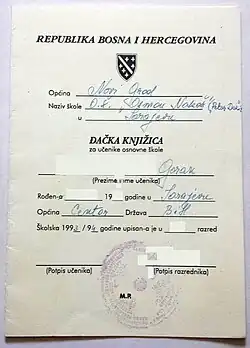 REPUBLIKA BOSNA I HERCEGOVINA
Općina Novi Grad
Naziv škole O.Š. "Osman Nakaš"
u Sarajevu
ĐAČKA KNJIŽICA
za učenike osnovne škole
Goran
(Prezime ime učenika)
Rođen-a 19 godine u Sarajevu
Općina Centar Država BiH
Školska 199 /94. godine upisan-a je u razred
(Potpis učenika) (Potpis razrednika)
M.P.